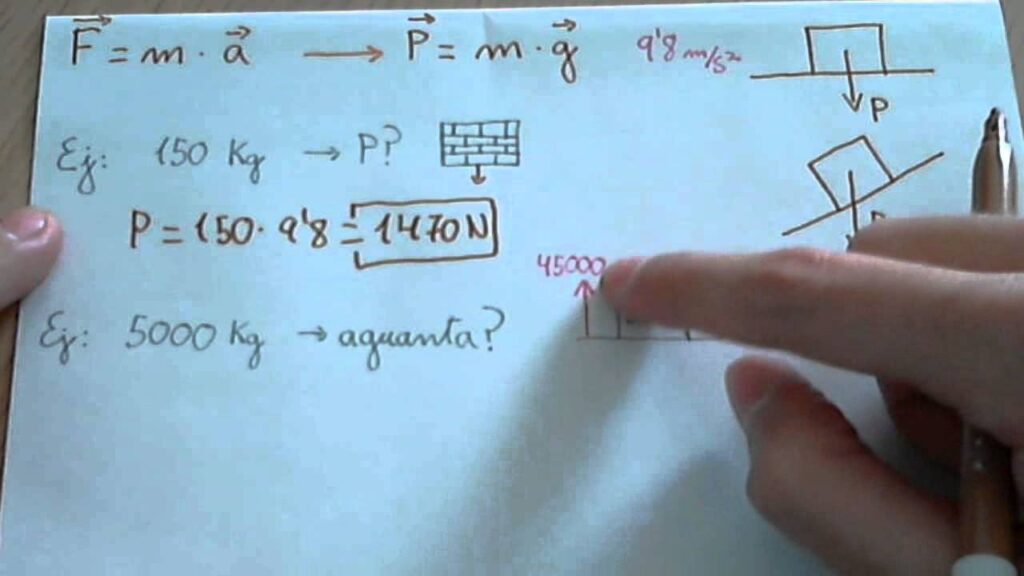 F = m · a → P = m · g 9'8 m/s²
P
Ej: 150 Kg → P?
P = 150 · 9'8 = 1470 N
45000
Ej: 5000 Kg → aguanta?